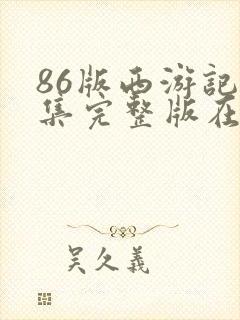 86版西游记
集完整版在
吴久義